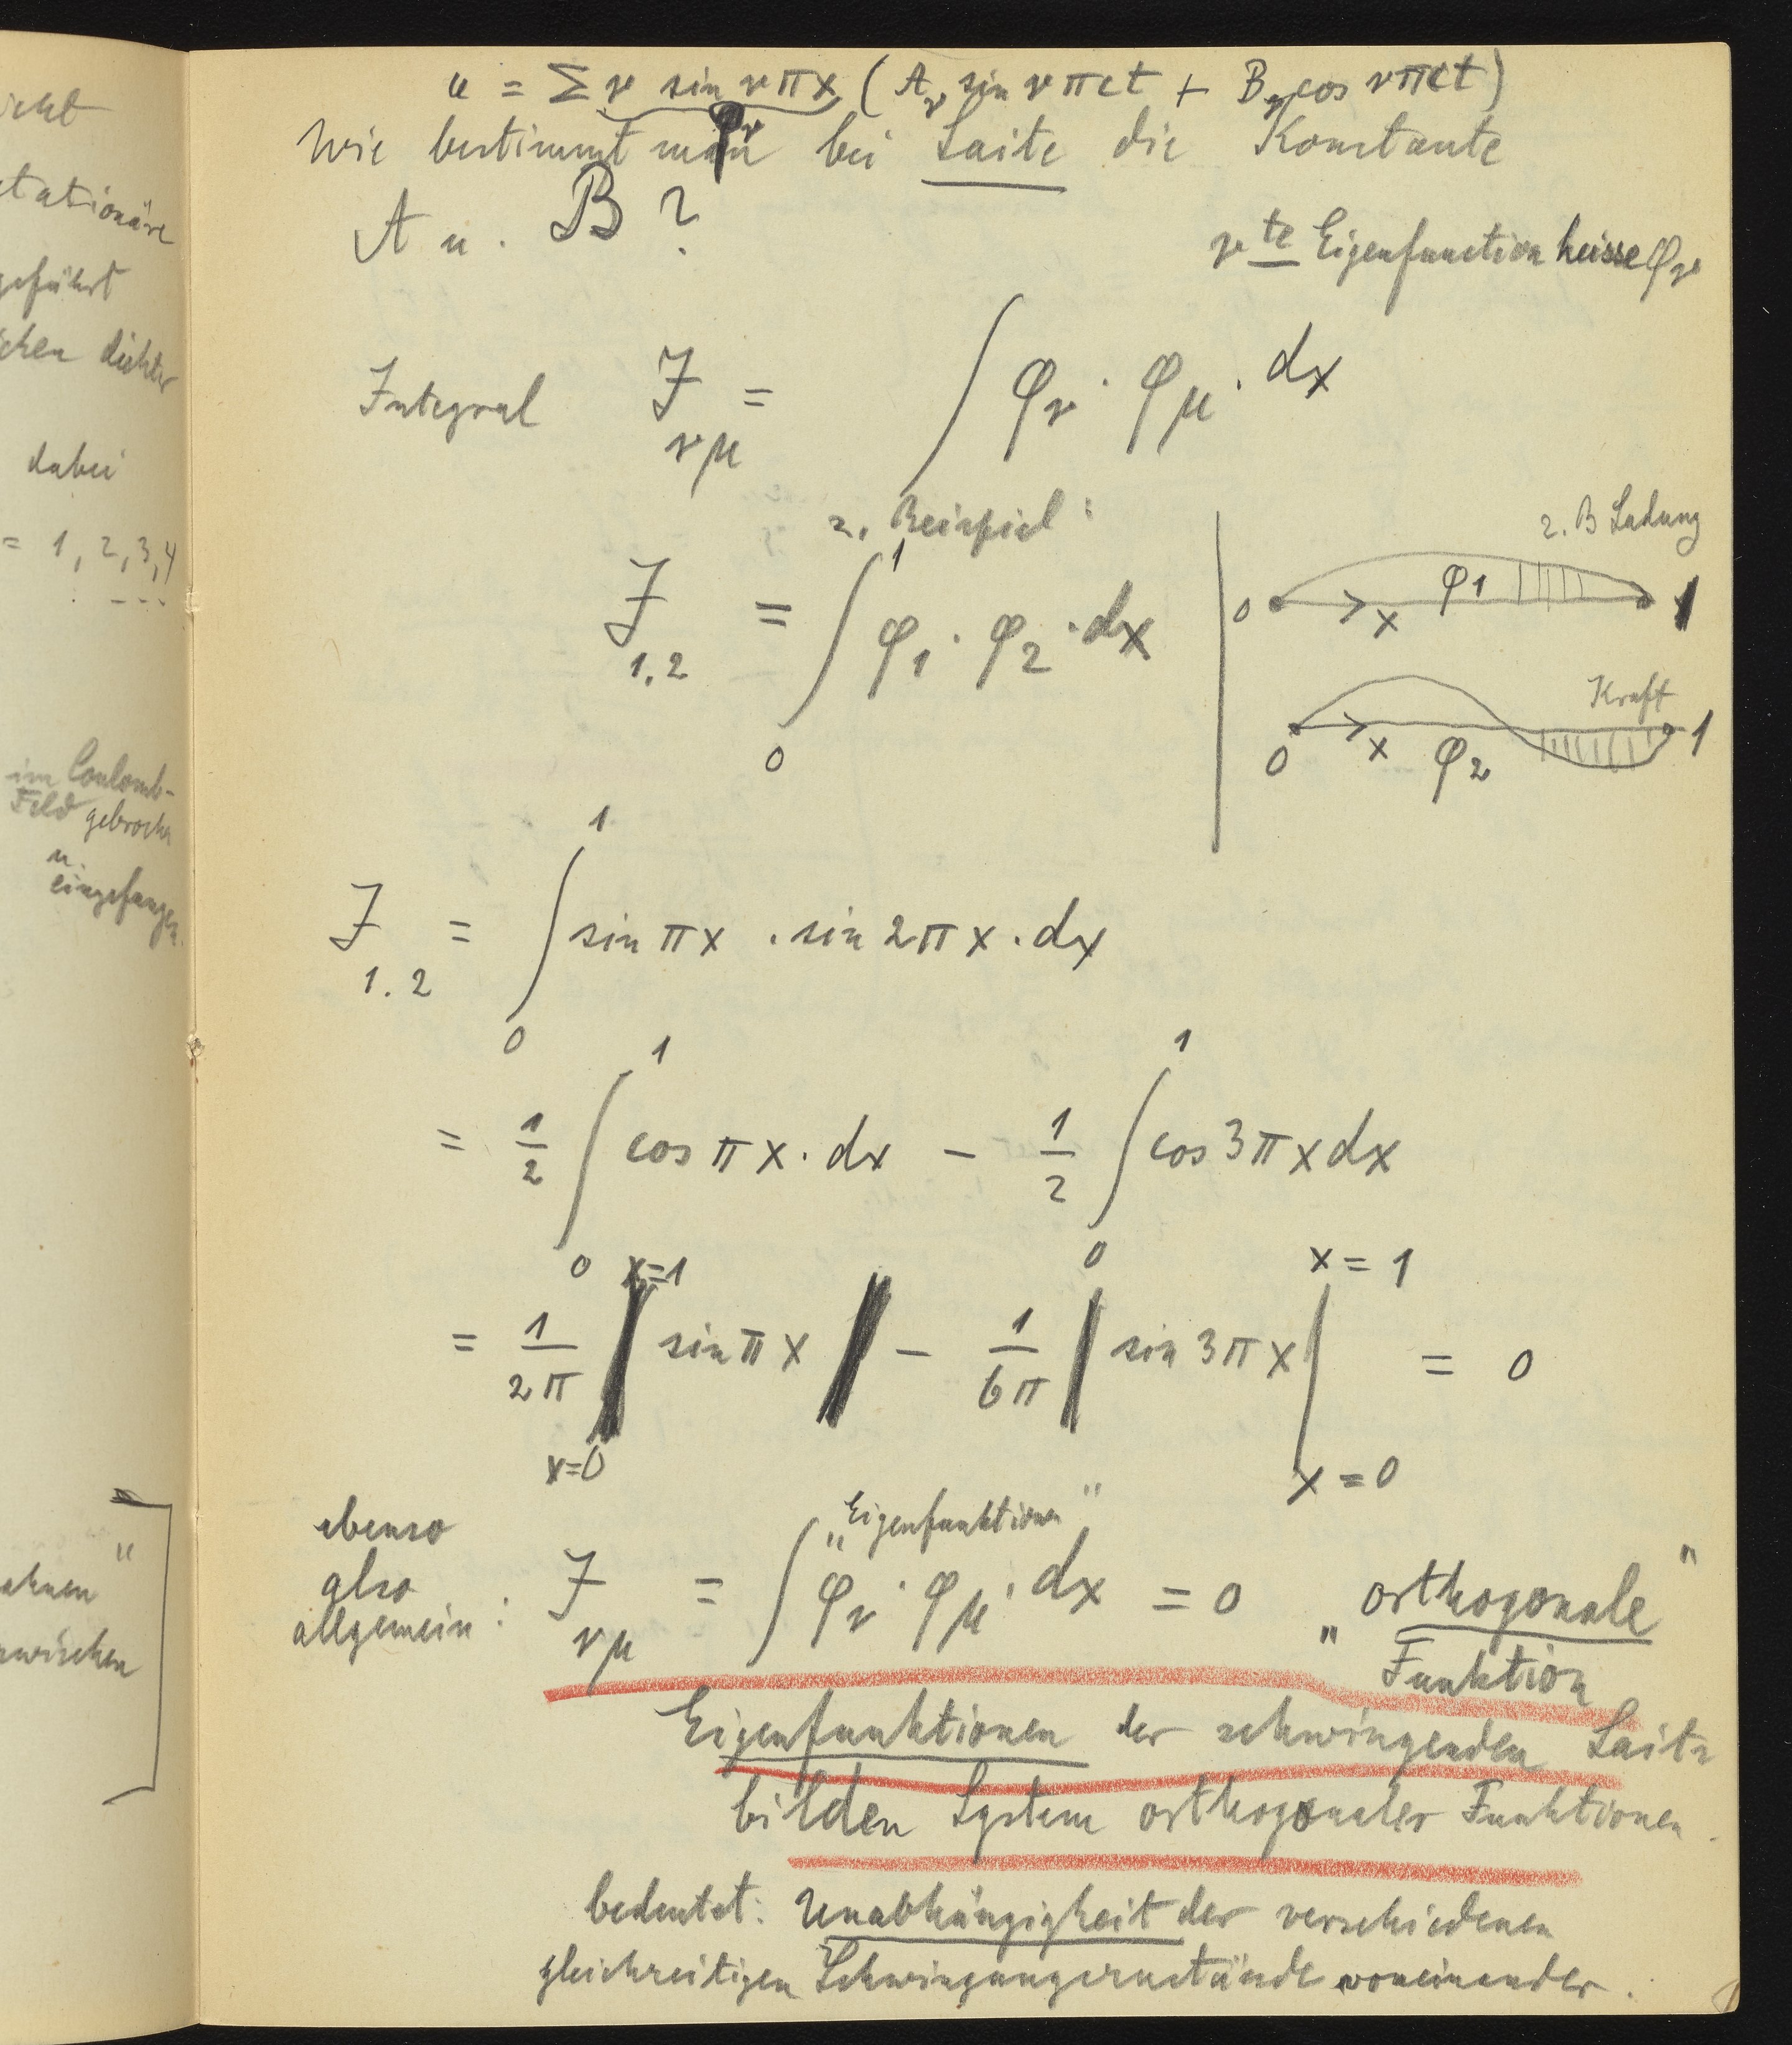 icht
stationäre
geführt
schen dichter
dabei
= 1, 2, 3, 4
. - - -
im Coulomb-
Feld gebrochen
u.
eingefangen.
ahnen "
zwischen
u = Σν sin νπx (Aν sin νπct + Bν cos νπct)
φν
Wie bestimmt man bei Saite die Konstante
A u. B ?
νte Eigenfunction heisse φν
Integral Jνμ = ∫ φν · φμ · dx
z. Beispiel :
J1.2 = ∫₀¹ φ1 · φ2 · dx
z. B Ladung
0 x φ1 1
Kraft
0 x φ2 1
J1.2 = ∫₀¹ sin πx · sin 2πx · dx
= 1/2 ∫₀¹ cos πx · dx − 1/2 ∫₀¹ cos 3πx dx
x=1 x = 1
= 1/2π | sin πx | − 1/6π | sin 3πx | = 0
x=0 x = 0
ebenso
also
allgemein :
„Eigenfunktionen"
Jνμ = ∫ φν · φμ · dx = 0 „orthogonale"
Funktion
Eigenfunktionen der schwingenden Saite
bilden System orthogonaler Funktionen.
bedeutet: Unabhängigkeit der verschiedenen
gleichzeitigen Schwingungszustände voneinander.